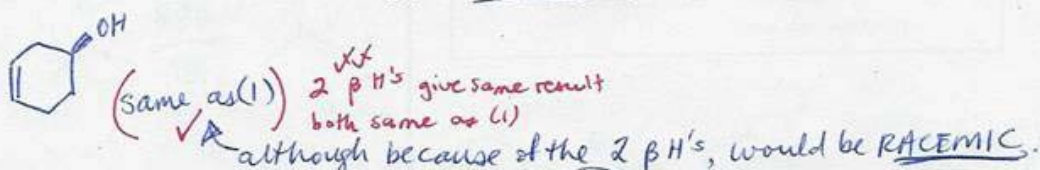 OH
(same as (1)) 2 β H's give same result
both same as (1)
although because of the 2 β H's, would be RACEMIC.